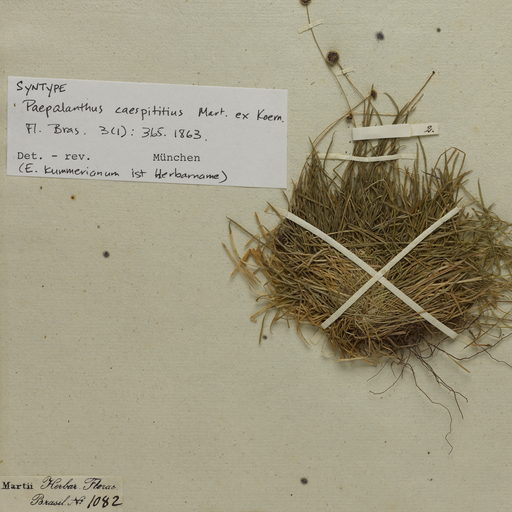 SYNTYPE
Paepalanthus caespititius Mart. ex Koern.
Fl. Bras. 3(1): 365. 1863.
Det. - rev. München
(E. Kummerianum ist Herbarname)
2.
Martii Herbar. Florae
Brasil. No 1082